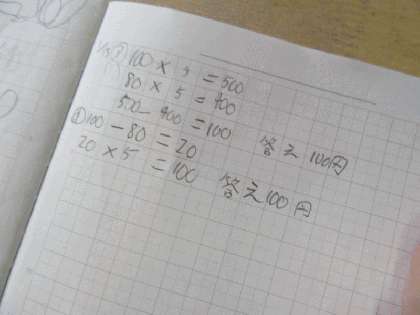 100 × 5 = 500
80 × 5 = 400
500 - 400 = 100 答え 100円
100 - 80 = 20
20 × 5 = 100 答え 100円